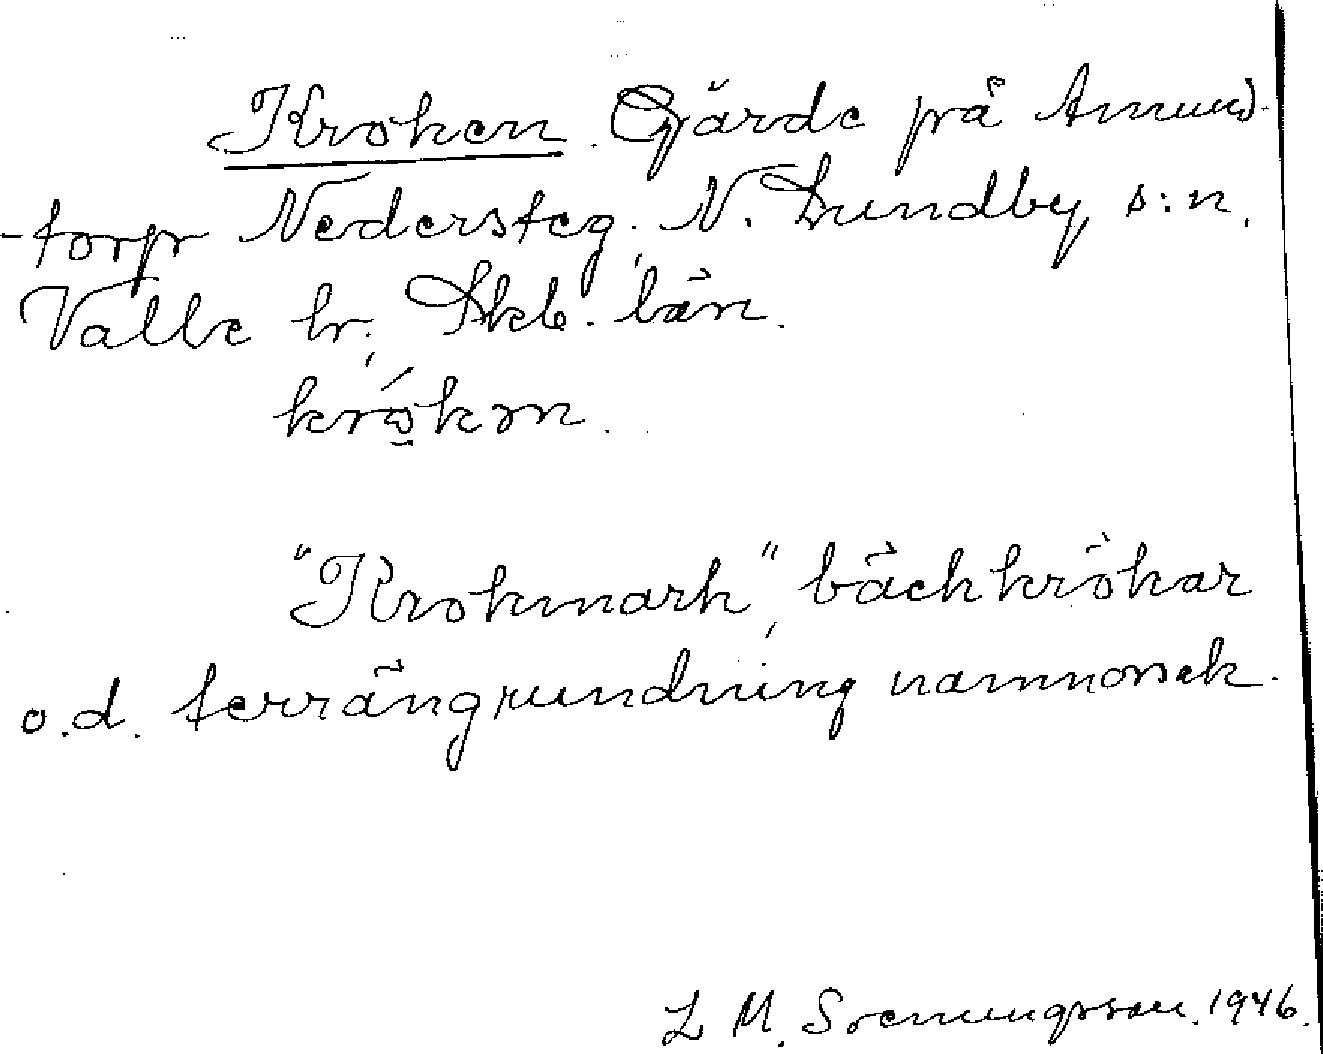 Kroken. Gärde på Amund-
-torp Nedersteg, N. Lundby s:n,
Valle hr, Skb. län.
krókm.
"Krokmark", bäckkrökar
o.d. terrängrundning namnorsak.
L M. Svenungsson. 1946.